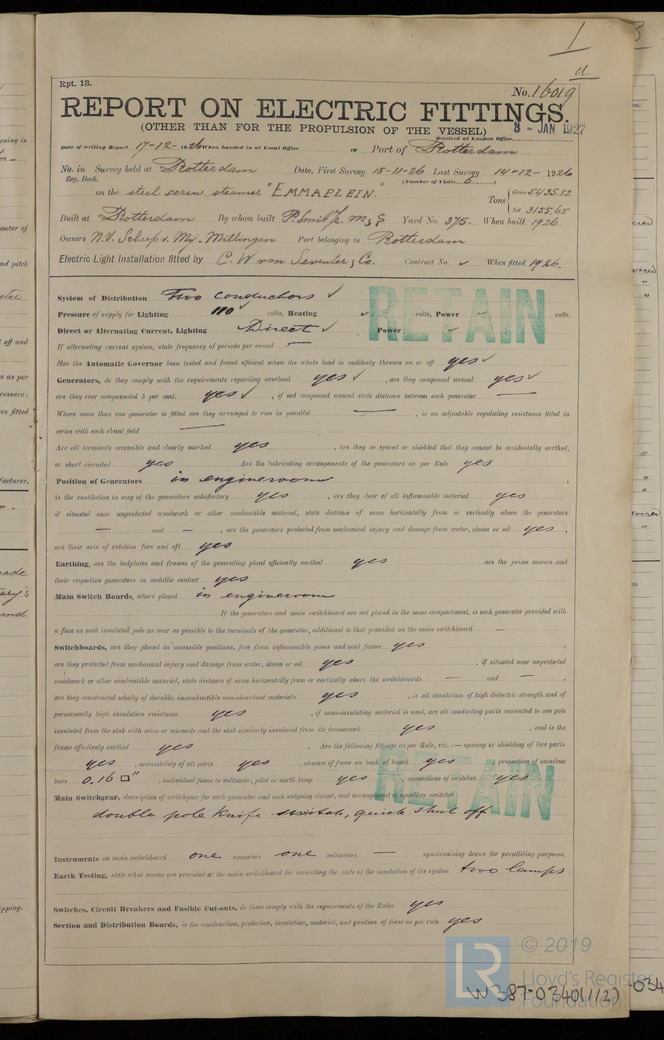 1
a
Rpt. 13.
No. 16019
REPORT ON ELECTRIC FITTINGS.
(OTHER THAN FOR THE PROPULSION OF THE VESSEL)
Received at London Office 8 - JAN 1927
Date of writing Report 17-12-1926 When handed in at Local Office 19 Port of Rotterdam
No. in Survey held at Rotterdam Date, First Survey 15-11-26 Last Survey 14-12-1926
Reg. Book. (Number of Visits 6)
on the steel screw steamer "EMMAPLEIN" Tons { Gross 5435.52
Net 3155.65
Built at Rotterdam By whom built P. Smit Jr. Yard No. 375. When built 1926.
Owners N.V. Scheepv. Mij. Millingen Port belonging to Rotterdam
Electric Light Installation fitted by C. W. van & Co. Contract No. ✓ When fitted 1926.
RETAIN
System of Distribution Two conductors ✓
Pressure of supply for Lighting 110 volts, Heating ✓ volts, Power ✓ volts.
Direct or Alternating Current, Lighting Direct ✓ Power ✓
If alternating current system, state frequency of periods per second —
Has the Automatic Governor been tested and found efficient when the whole load is suddenly thrown on or off yes ✓
Generators, do they comply with the requirements regarding overload yes ✓, are they compound wound yes ✓
are they over compounded 5 per cent. yes ✓, if not compound wound state distance between each generator —
Where more than one generator is fitted are they arranged to run in parallel —, is an adjustable regulating resistance fitted in
series with each shunt field —
Are all terminals accessible and clearly marked yes, are they so spaced or shielded that they cannot be accidentally earthed,
or short circuited yes Are the lubricating arrangements of the generators as per Rule yes
Position of Generators in engineroom,
is the ventilation in way of the generators satisfactory yes, are they clear of all inflammable material yes
if situated near unprotected woodwork or other combustible material, state distance of same horizontally from or vertically above the generators
— and —, are the generators protected from mechanical injury and damage from water, steam or oil yes,
are their axis of rotation fore and aft yes
Earthing, are the bedplates and frames of the generating plant efficiently earthed yes are the prime movers and
their respective generators in metallic contact yes
Main Switch Boards, where placed in engineroom
If the generators and main switchboard are not placed in the same compartment, is each generator provided with
a fuse on each insulated pole as near as possible to the terminals of the generator, additional to that provided on the main switchboard —
Switchboards, are they placed in accessible positions, free from inflammable gases and acid fumes yes,
are they protected from mechanical injury and damage from water, steam or oil yes, if situated near unprotected
woodwork or other combustible material, state distance of same horizontally from or vertically above the switchboards — and —,
are they constructed wholly of durable, incombustible non-absorbent materials yes, is all insulation of high dielectric strength and of
permanently high insulation resistance yes, if semi-insulating material is used, are all conducting parts connected to one pole
insulated from the slab with mica or micanite and the slab similarly insulated from its framework yes, and is the
frame effectively earthed yes. Are the following fittings as per Rule, viz.:— spacing or shielding of live parts
yes, accessibility of all parts yes, absence of fuses on back of board yes, proportion of omnibus
bars 0.16 □", individual fuses to voltmeter, pilot or earth lamp yes, connections of switches yes
RETAIN
Main Switchgear, description of switchgear for each generator and each outgoing circuit, and arrangement of equalizer switches
double pole knife switch, quick shut off
Instruments on main switchboard one ammeters one voltmeters — synchronising device for paralleling purposes.
Earth Testing, state what means are provided at the main switchboard for indicating the state of the insulation of the system two lamps
Switches, Circuit Breakers and Fusible Cut-outs, do these comply with the requirements of the Rules yes
Section and Distribution Boards, is the construction, protection, insulation, material, and position of these as per rule yes
LR
© 2019
Lloyd's Register
Foundation
W387-0340 (1/2)